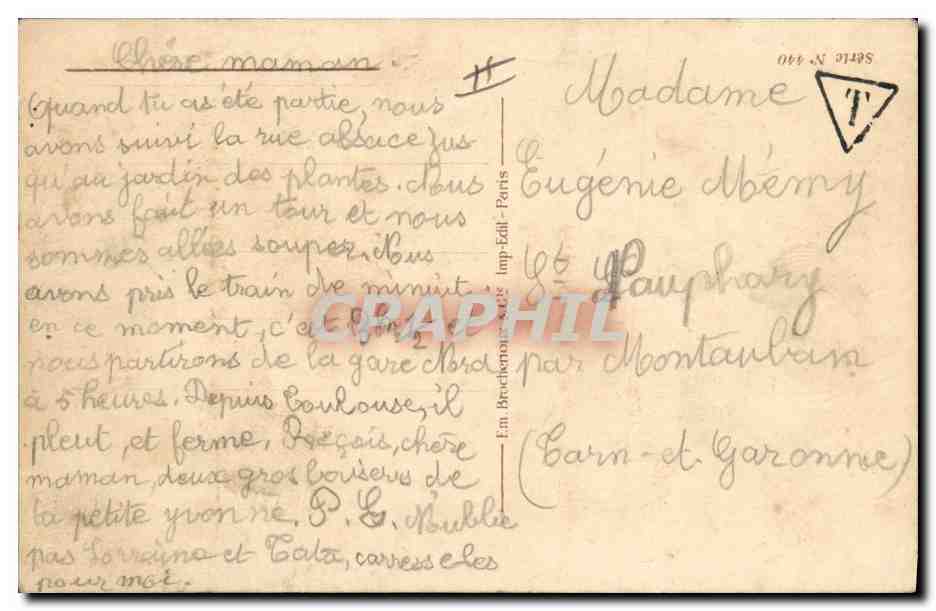 Chère maman.
Quand tu as été partie, nous
avons suivi la rue alsace jus-
qu'au jardin des plantes. Nous
avons fait un tour et nous
sommes allées souper. Nous
avons pris le train de minuit.
en ce moment, c'est 1/2 et
nous partirons de la gare Nord
à 5 heures. Depuis Toulouse, il
pleut, et ferme. Reçois, chère
maman, deux gros baisers de
ta petite yvonne. P.S. N'ublie
pas Lorraine et Tata, carresse les
pour moi.
Em. Brocherioux & Cie Imp-Edit - Paris
Série N° 440
T
Madame
Eugénie Mémy
St Nauphary
par Montauban
(Tarn-et-Garonne)
CPAPHIL